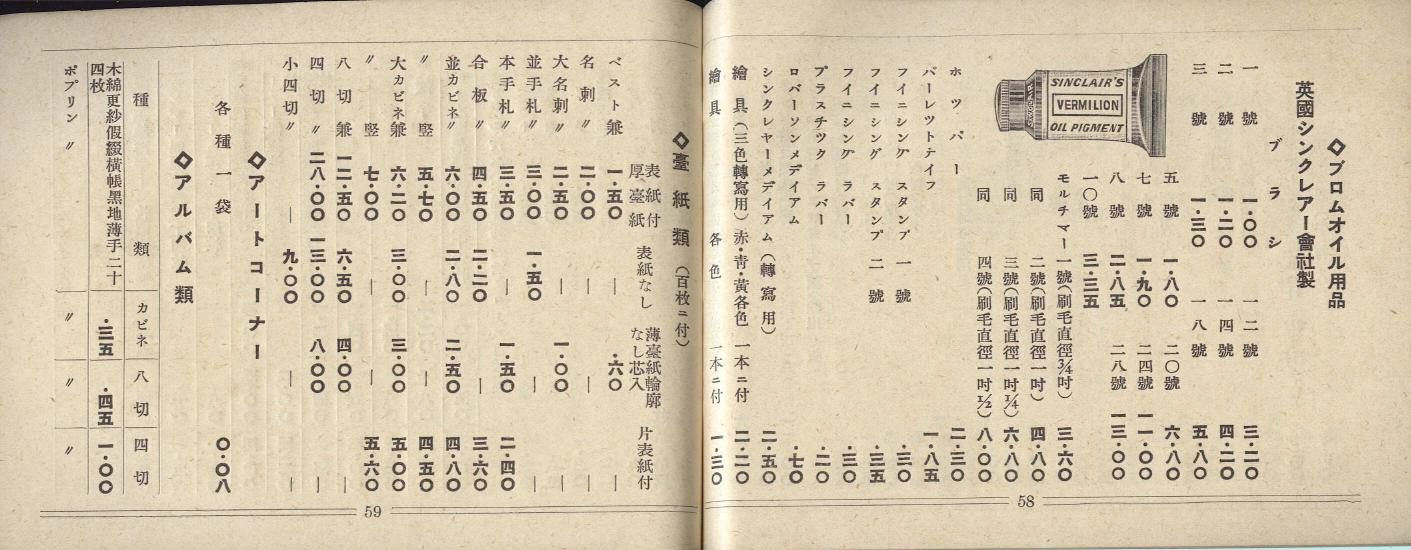 ◇ブロムオイル用品
英國シンクレアー會社製
ブラシ
一號 一・〇〇 一二號 三・二〇
二號 一・二〇 一四號 四・二〇
三號 一・三〇 一八號 五・八〇
五號 一・八〇 二〇號 六・八〇
七號 一・九〇 二四號 一一・〇〇
八號 二・八五 二八號 一三・〇〇
一〇號 三・三五
SINCLAIR'S
VERMILION
OIL PIGMENT
モルチマー 一號(刷毛直徑3/4吋) 三・六〇
同 二號(刷毛直徑一吋) 四・八〇
同 三號(刷毛直徑一吋1/4) 六・八〇
同 四號(刷毛直徑一吋1/2) 八・〇〇
ホツパー 二・三〇
パーレツトナイフ 一・八五
フイニシング スタンプ 一號 ・三〇
フイニシング スタンプ 二號 ・三五
フイニシング ラバー ・三〇
プラスチツク ラバー ・二〇
ロバーソンメデイアム ・七〇
シンクレヤーメデイアム(轉寫用) 二・五〇
繪具(三色轉寫用)赤・靑・黃各色 一本ニ付 二・二〇
繪具 各色 一本ニ付 一・三〇
58
◇臺紙類(百枚ニ付)
表紙付厚臺紙 表紙なし 薄臺紙輪廓なし芯入 片表紙付
ベスト兼 一・五〇 ・六〇
名刺〃 二・〇〇 — — —
大名刺〃 二・五〇 — 一・〇〇 —
並手札〃 三・〇〇 一・五〇 — —
本手札〃 三・五〇 — 一・五〇 二・四〇
合板〃 四・五〇 二・二〇 — 三・六〇
並カビネ〃 六・〇〇 二・八〇 二・五〇 四・八〇
〃 竪 五・七〇 — — 四・五〇
大カビネ兼 六・二〇 三・〇〇 三・〇〇 五・〇〇
〃 竪 七・〇〇 — — 五・六〇
八切兼 一二・五〇 六・五〇 四・〇〇 —
四切〃 二八・〇〇 一三・〇〇 八・〇〇 —
小四切〃 — 九・〇〇 — —
◇アートコーナー
各種一袋 〇・〇八
◇アルバム類
種類 カビネ 八切 四切
木綿更紗假綴橫帳黑地薄手二十四枚 ・三五 ・四五 一・〇〇
ポプリン 〃 〃 〃 〃
59